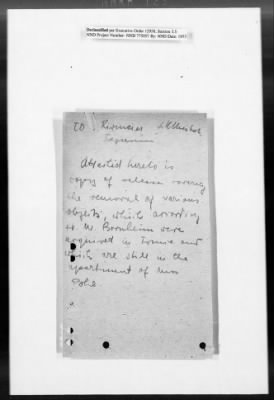 Declassified per Executive Order 12958, Section 3.5
NND Project Number: NND 775057 By: NND Date: 1977
to
Attached hereto is
copy of release covering
the removal of various
objects, which according
to M. Bornheim were
acquired in France and
which are still in the
apartment of Miss